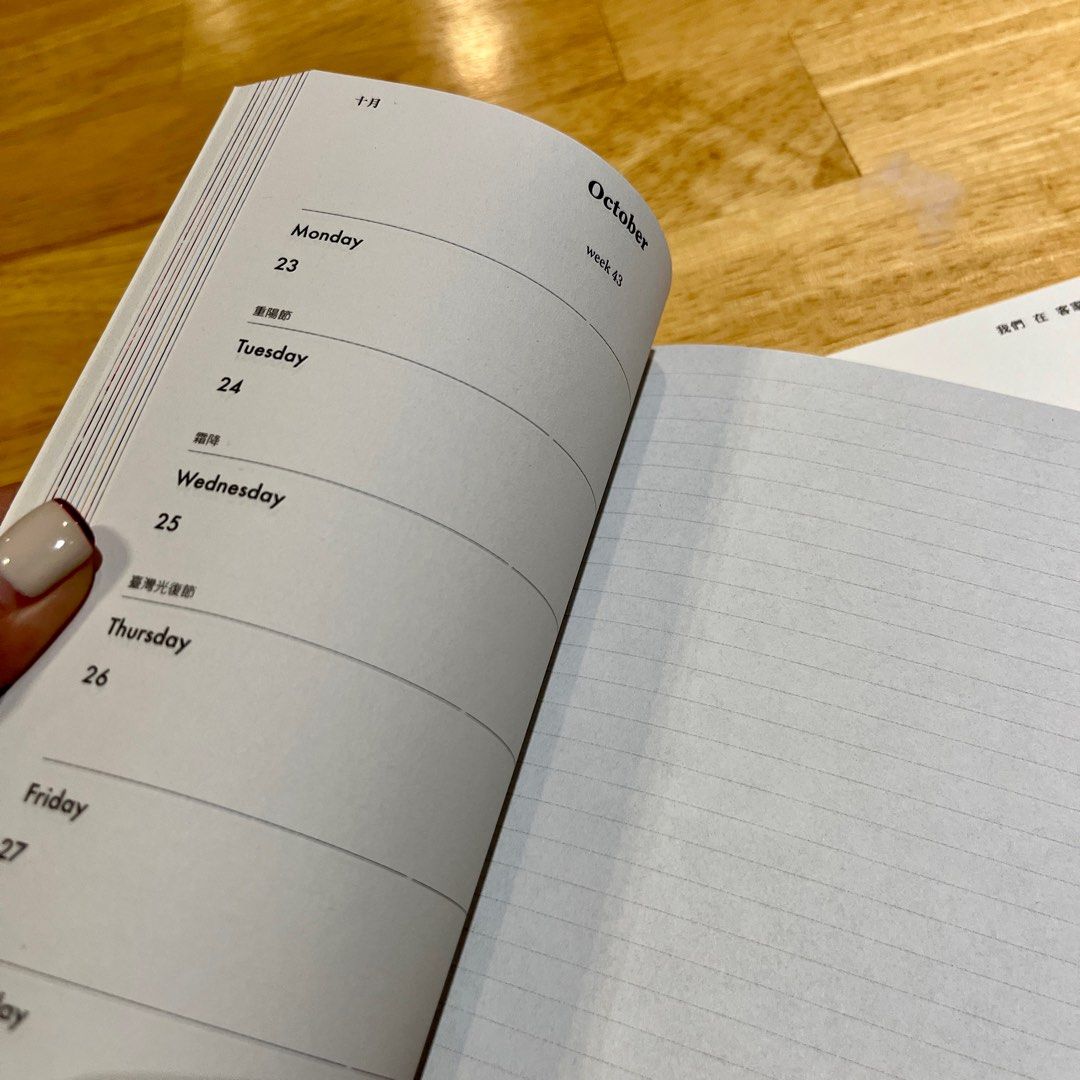 十月
October
week 43
Monday
23
重陽節
Tuesday
24
霜降
Wednesday
25
臺灣光復節
Thursday
26
Friday
27
ay
我們 在 客家